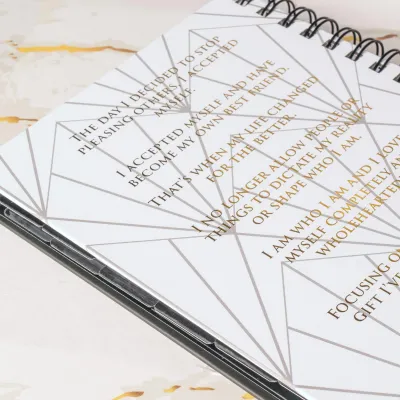 THE DAY I DECIDED TO STOP
PLEASING OTHERS, I ACCEPTED
MYSELF.
I ACCEPTED MYSELF AND HAVE
BECOME MY OWN BEST FRIEND.
THAT'S WHEN MY LIFE CHANGED
FOR THE BETTER.
I NO LONGER ALLOW PEOPLE OR
THINGS TO DICTATE MY REALITY
OR SHAPE WHO I AM.
I AM WHO I AM AND I LOVE
MYSELF COMPLETELY AN
WHOLEHEARTE
FOCUSING O
GIFT I'VE